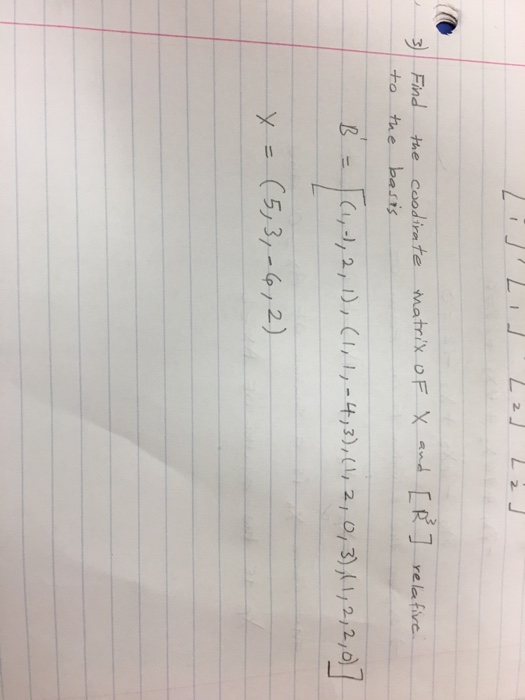 [ 1 ] , [ 1 ] [ 2 ] [ 2 ]
3) Find the coodirate matrix OF X and [R³] relative
to the basis
B' = [(1,-1,2,1), (1,1,-4,3), (1,2,0,3), (1,2,2,0)]
X = (5,3,-6,2)